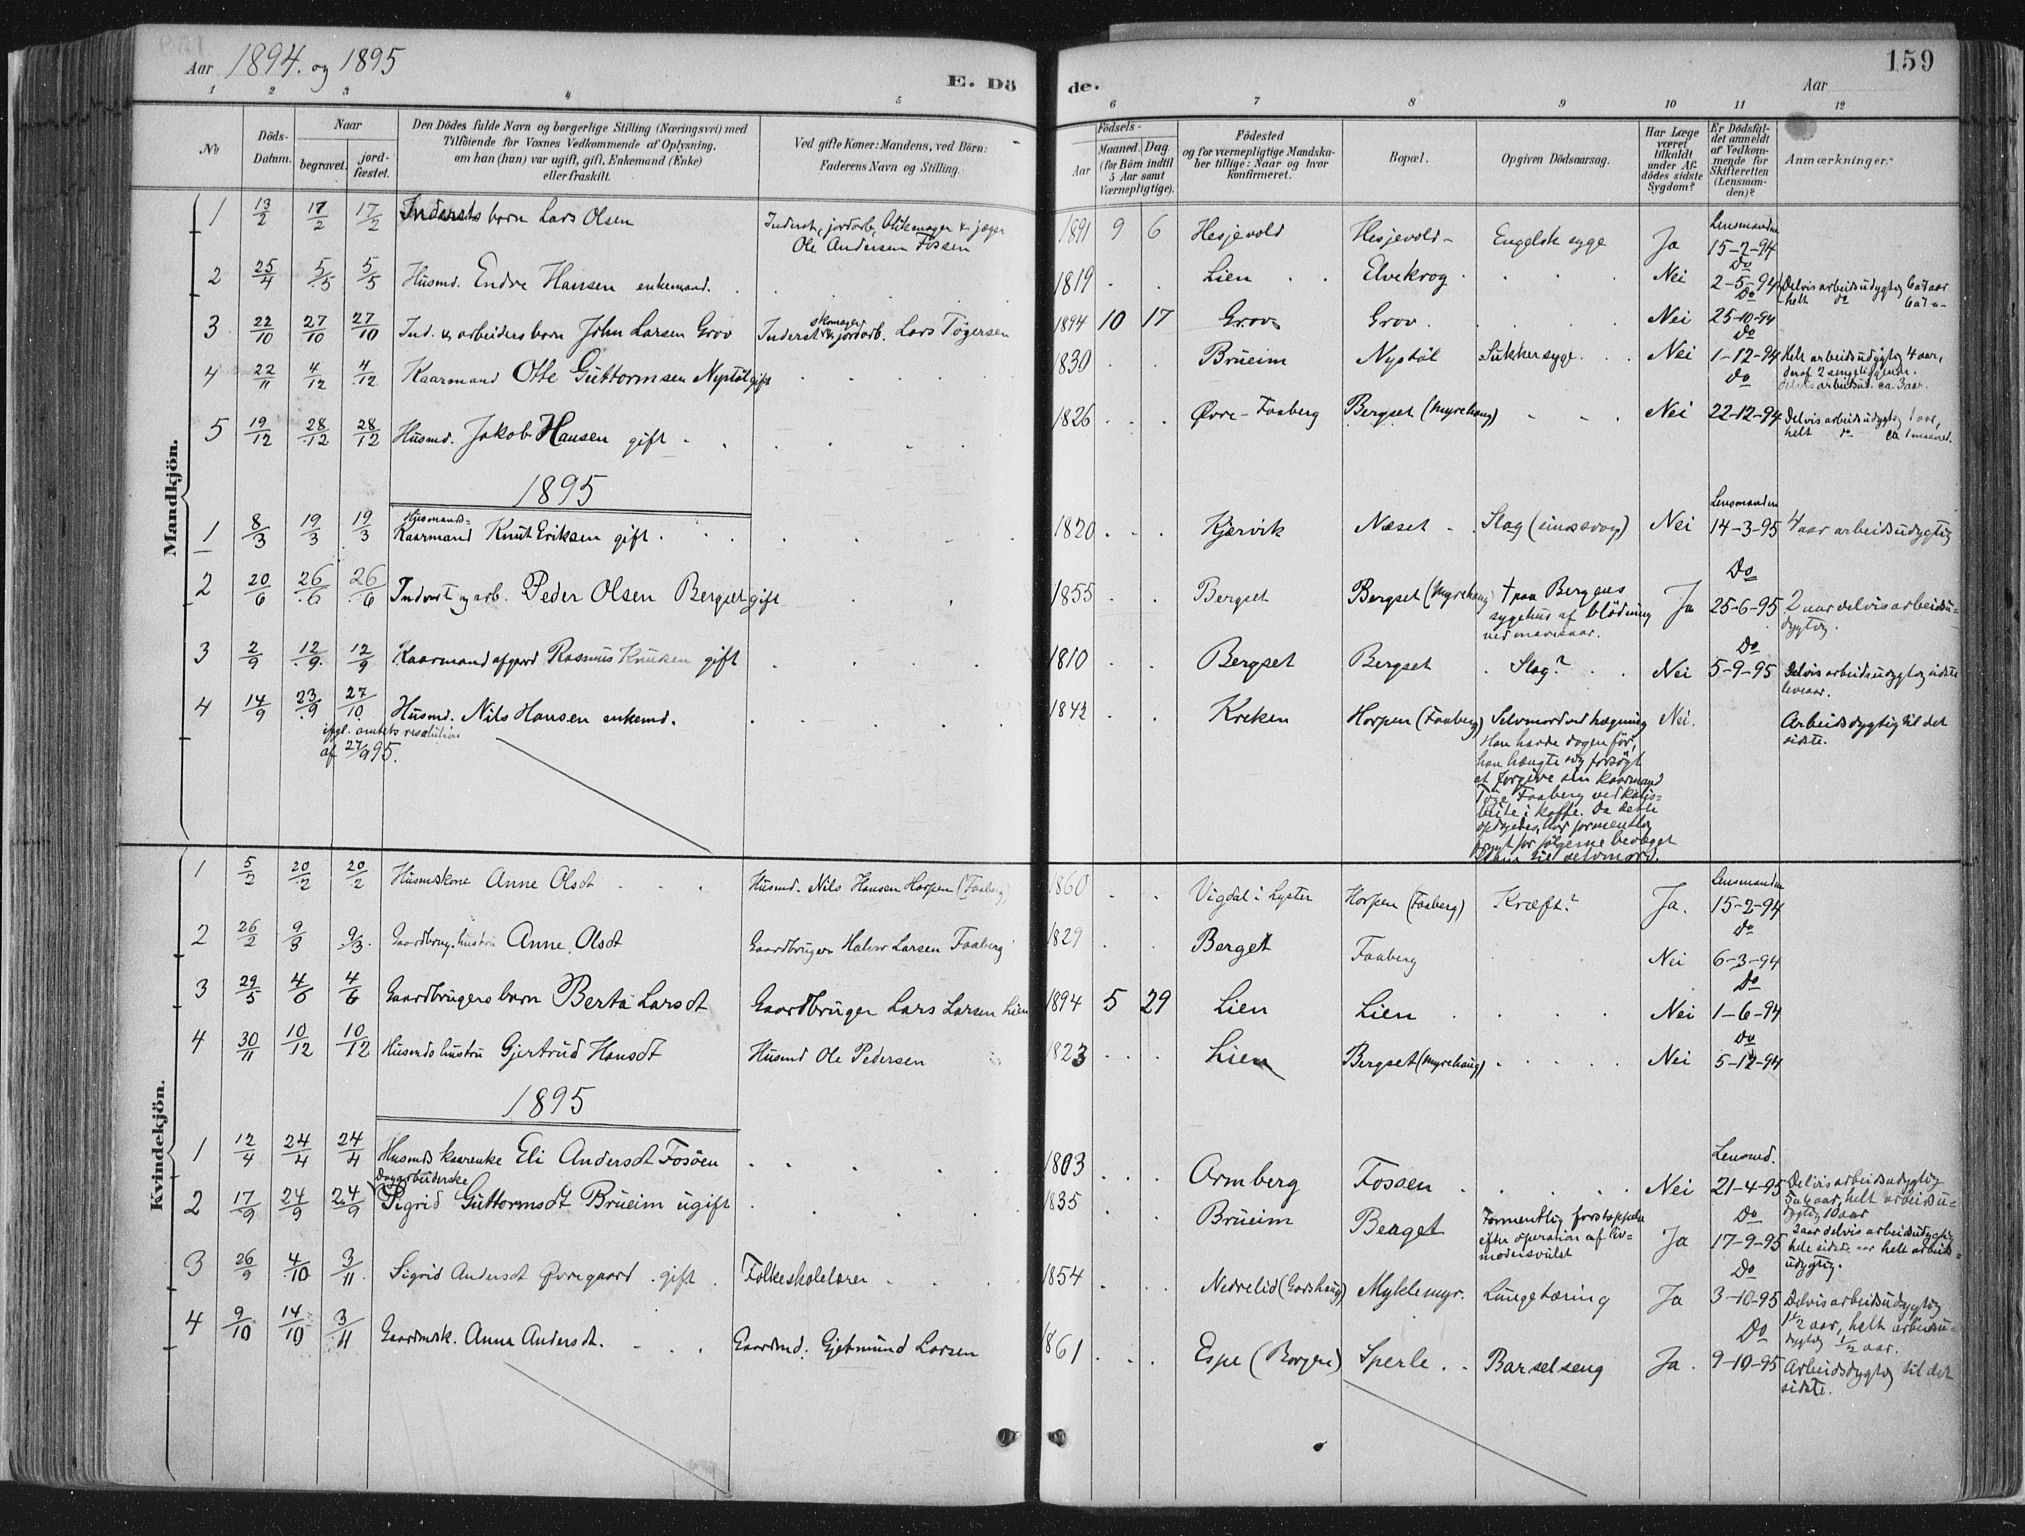 Aar 1894. og 1895
E. Dö
de.
Aar
159
1 2 3 4 5 6 7 8 9 10 11 12
№
Döds-Datum.
Naar
begravet.
jord-fæstet.
Den Dödes fulde Navn og borgerlige Stilling (Næringsvei) med
Tilföiende for Voxnes Vedkommende af Oplysning,
om han (hun) var ugift, gift, Enkemand (Enke)
eller fraskilt.
Ved gifte Koner: Mandens, ved Börn:
Faderens Navn og Stilling.
Födsels-
Aar
Maaned. Dag
(for Börn indtil
5 Aar samt
Værnepligtige).
Födested
og for værnepligtige Mandska-
ber tillige: Naar og hvor
konfirmeret.
Bopæl.
Opgiven Dödsaarsag.
Har Læge
været
tilkaldt
under Af-
dödes sidste
Sygdom?
Er Dödsfal-
det anmeldt
af Vedkom-
mende for
Skifteretten
(Lensman-
den)?
Anmærkninger.
Mandkjön.
1 13/2 17/2 17/2 Inderst's barn Lars Olsen Inderst, jordarb, & jæger Ole Andersen Fossen 1891 9 6 Hesjevold Hesjevold Engelsk syge Ja Lensmanden 15-2-94
2 25/4 5/5 5/5 Husmd. Endre Hansen enkemand. 1819 Lien Elvekrog Nei Do 2-5-94 Delvis arbeidsudygtig 6 a 7 aar helt do 6 a 7 "
3 22/10 27/10 27/10 Ind. & arbeiders barn John Larsen Grov Inderst, skomager & jordarb. Lars Tøgersen 1894 10 17 Grov Grov Nei Do 25-10-94
4 22/11 4/12 4/12 Kaarmand Otte Guttormsen Nystøl gift 1830 Brueim Nystøl Sukkersyge Nei Do 1-12-94 Helt arbeidsudygtig 4 aar, deraf 2 sengeliggende. delvis arbeidsud. ca. 3 aar.
5 19/12 28/12 28/12 Husmd. Jakob Hansen gift 1826 Øvre-Faaberg Bergset (Myrehaug) Nei Do 22-12-94 Delvis arbeidsudygtig 1 aar, helt do ca 1 maaned.
1895
1 8/3 19/3 19/3 Husmands-Kaarmand Knut Eriksen gift 1820 Kjærvik Næset Slag Nei Lensmanden 14-3-95 4 aar arbeidsudygtig
2 20/6 26/6 26/6 Inderst og arb. Peder Olsen Bergset gift 1855 Bergset Bergset (Myrehaug) † paa Bergens sygehus af blödning ved mavesaar. Ja Do 25-6-95 2 aar delvis arbeidsu-dygtig.
3 2/9 12/9 12/9 Kaarmand afgaard Rasmus Knutsen gift 1810 Bergset Bergset Slag? Nei Do 5-9-95 Delvis arbeidsudygtig sidste leveaar.
4 14/9 23/9 27/10 Husmd. Nils Hansen enkemd. 1842 Kreken Horpen (Faaberg) Selvmord ved hængning Nei. Arbeidsdygtig til det sidste.
ifgl. amtets resolution
af 27/9 95.
Han havde dagen før,
han hængte sig forsøgt
at forgive sin kaarmand
Faaberg ved
i kaffe. Da dette
opdagedes, har formentlig
frygt for følgerne bevæget
til selvmord.
Kvindekjön.
1 5/2 20/2 20/2 Husmskone Anne Olsdt Husmd. Nils Hansen Horpen (Faaberg) 1860 Vigdal i Lyster Horpen (Faaberg) Kræft? Ja. Lensmanden 15-2-94
2 26/2 9/3 9/3 Gaardbrug. hustru Anne Olsdt Gaardbruger Halvor Larsen Faaberg 1829 Berget Faaberg Nei Do 6-3-94
3 29/5 4/6 4/6 Gaardbrugers barn Berta Larsdt Gaardbruger Lars Larsen Lien 1894 5 29 Lien Lien Nei Do 1-6-94
4 30/11 10/12 10/12 Husmds hustru Gjertrud Hansdt Husmd Ole Pedersen 1823 Lien Bergset (Myrehaug) Nei Do 5-12-94
1895
1 12/4 24/4 24/4 Husmds kaarenke Eli Andersdt Fosöen 1803 Ormberg Fossen Nei Lensmd. 21-4-95 Delvis arbeidsudygtig 5 a 6 aar, helt arbeidsu-dygtig 10 aar
2 17/9 24/9 24/9 Dagarbuderske Sigrid Guttormsdt Brueim ugift 1835 Brueim Berget Formentlig forstoppelse efter operation af liv-modersvulst Ja Do 17-9-95 2 aar delvis arbeidsudygtig, hele sidste aar helt arbeids-udygtig.
3 26/9 4/10 3/11 Sigrid Andersdt Øvregaard gift Folkeskolelærer 1854 Nedrelid (Gardshaug) Myklemyr. Lungetæring Ja Do 3-10-95 Delvis arbeidsudygtig 1 1/2 aar, helt arbeidsu-dygtig 1/2 aar.
4 9/10 14/10 3/11 Gaardmsk. Anna Andersdt. Gaardmd. Gjetmund Larsen 1861 Espe (Borgen) Sperle Barselseng Ja Do 9-10-95 Arbeidsdygtig til det sidste.